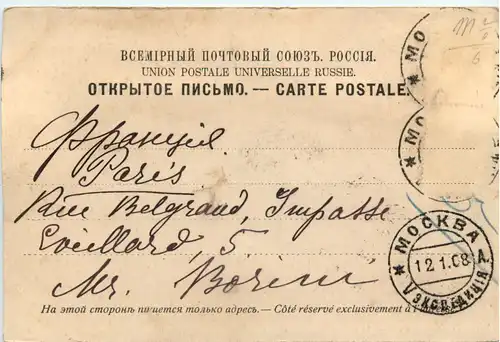 ВСЕМІРНЫЙ ПОЧТОВЫЙ СОЮЗЪ. РОССІЯ.
UNION POSTALE UNIVERSELLE RUSSIE.
ОТКРЫТОЕ ПИСЬМО. — CARTE POSTALE.
Франція
Paris
Rue Belgrand, Impasse
Loeillard, 5.
Mr. Borin
На этой сторонѣ пишется только адресъ. — Côté réservé exclusivement à l'
* МО
* МО
* МОСКВА
12.1.08
V ЭКСПЕДИЦІЯ А.